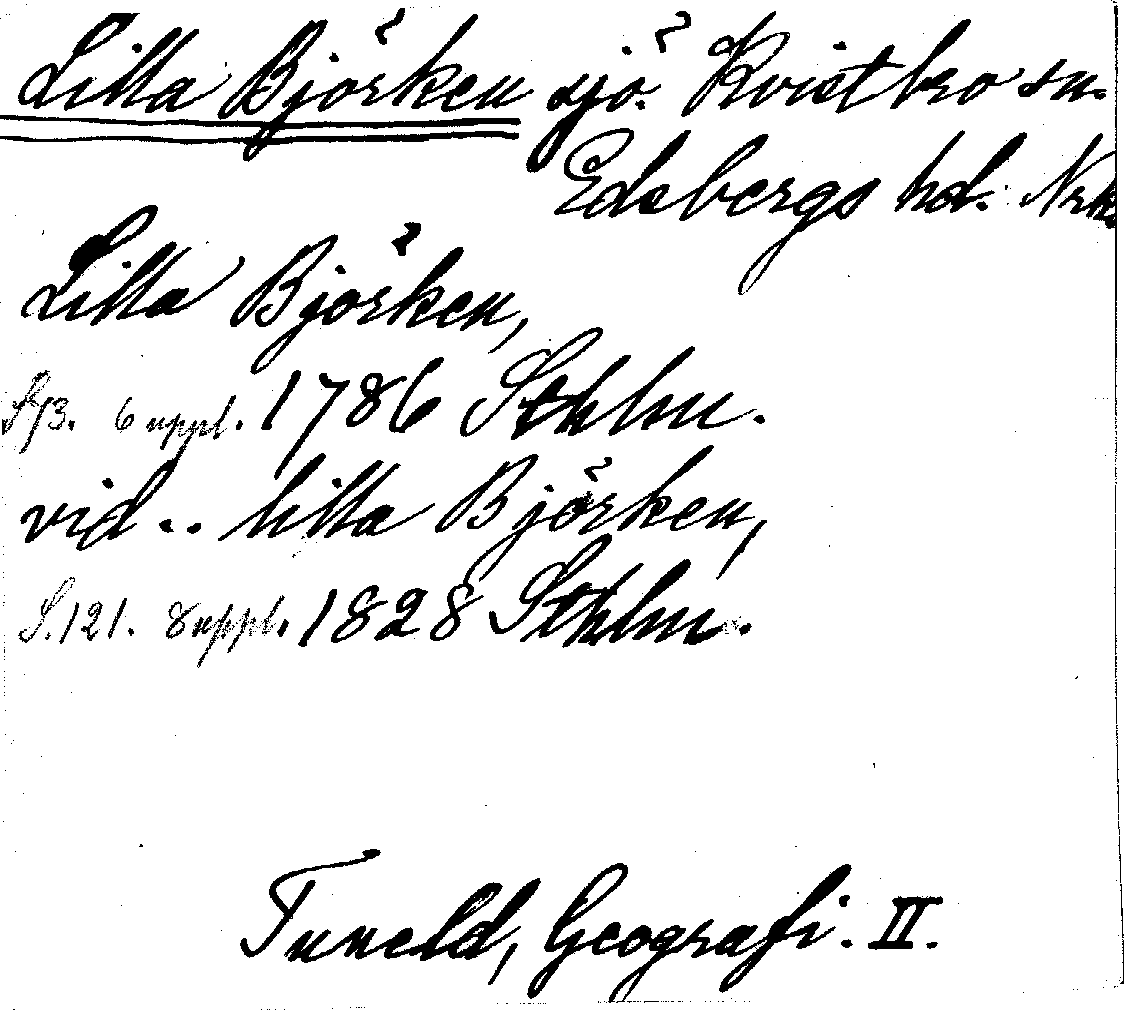 Lilla Björken sjö. Kvistbro sn.
Edsbergs hd. Nrk.
Lilla Björken,
S 93. 6 uppl. 1786 Sthlm.
vid .. lilla Björken,
S. 121. 8 uppl. 1828 Sthlm.
Tuneld, Geografi. II.